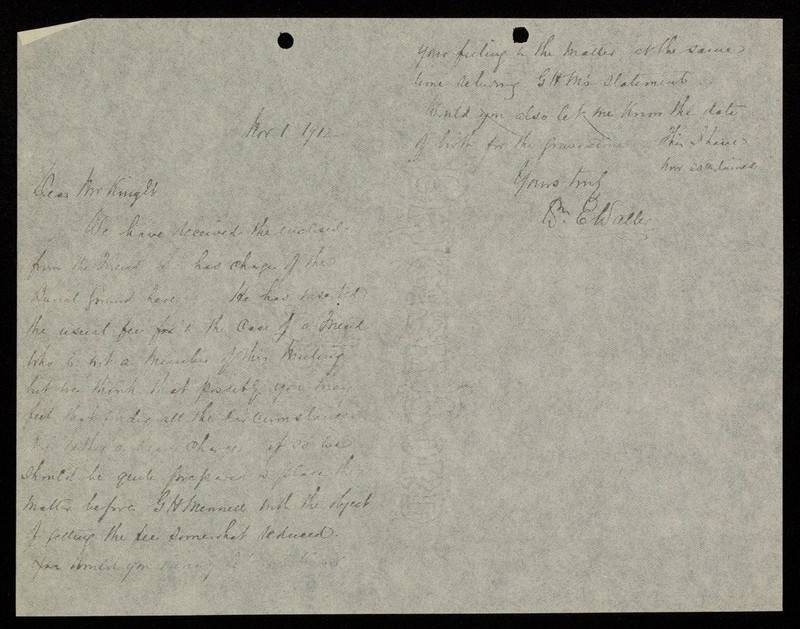 Nov 1 1912
Dear Mr Knight
We have received the enclosed
from the Friend who has charge of the
Burial Ground here. He has inserted
the usual fee for in the case of a Friend
who is not a Member of this Meeting
but we think that possibly you may
feel that under all the circumstances
it is rather a heavy charge if so we
should be quite prepared to place the
matter before G H Mennell with the object
of getting the fee somewhat reduced.
for would you
your feeling in the matter at the same
time returning G H M's statement
Would you also let me know the date
of birth for the gravestone This I have
now ascertained
Yours truly
Bm E Waller